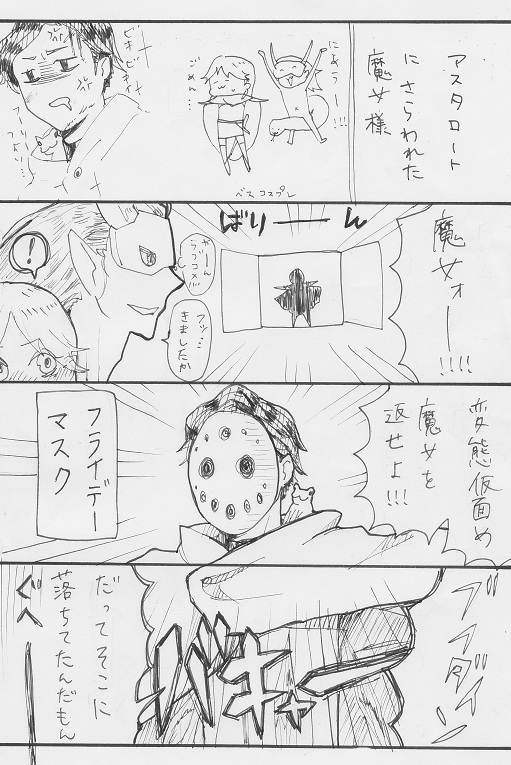 アスタロート
にさらわれた
魔女様
にあうー!!
ごめん…
ベスコスプレ
魔女ォー!!!!
ばりーーん
フッ…
きましたか
!
変態仮面め
魔女を
返せよ!!!
フライデー
マスク
バキャー
だってそこに
落ちてたんだもん
ぐへー